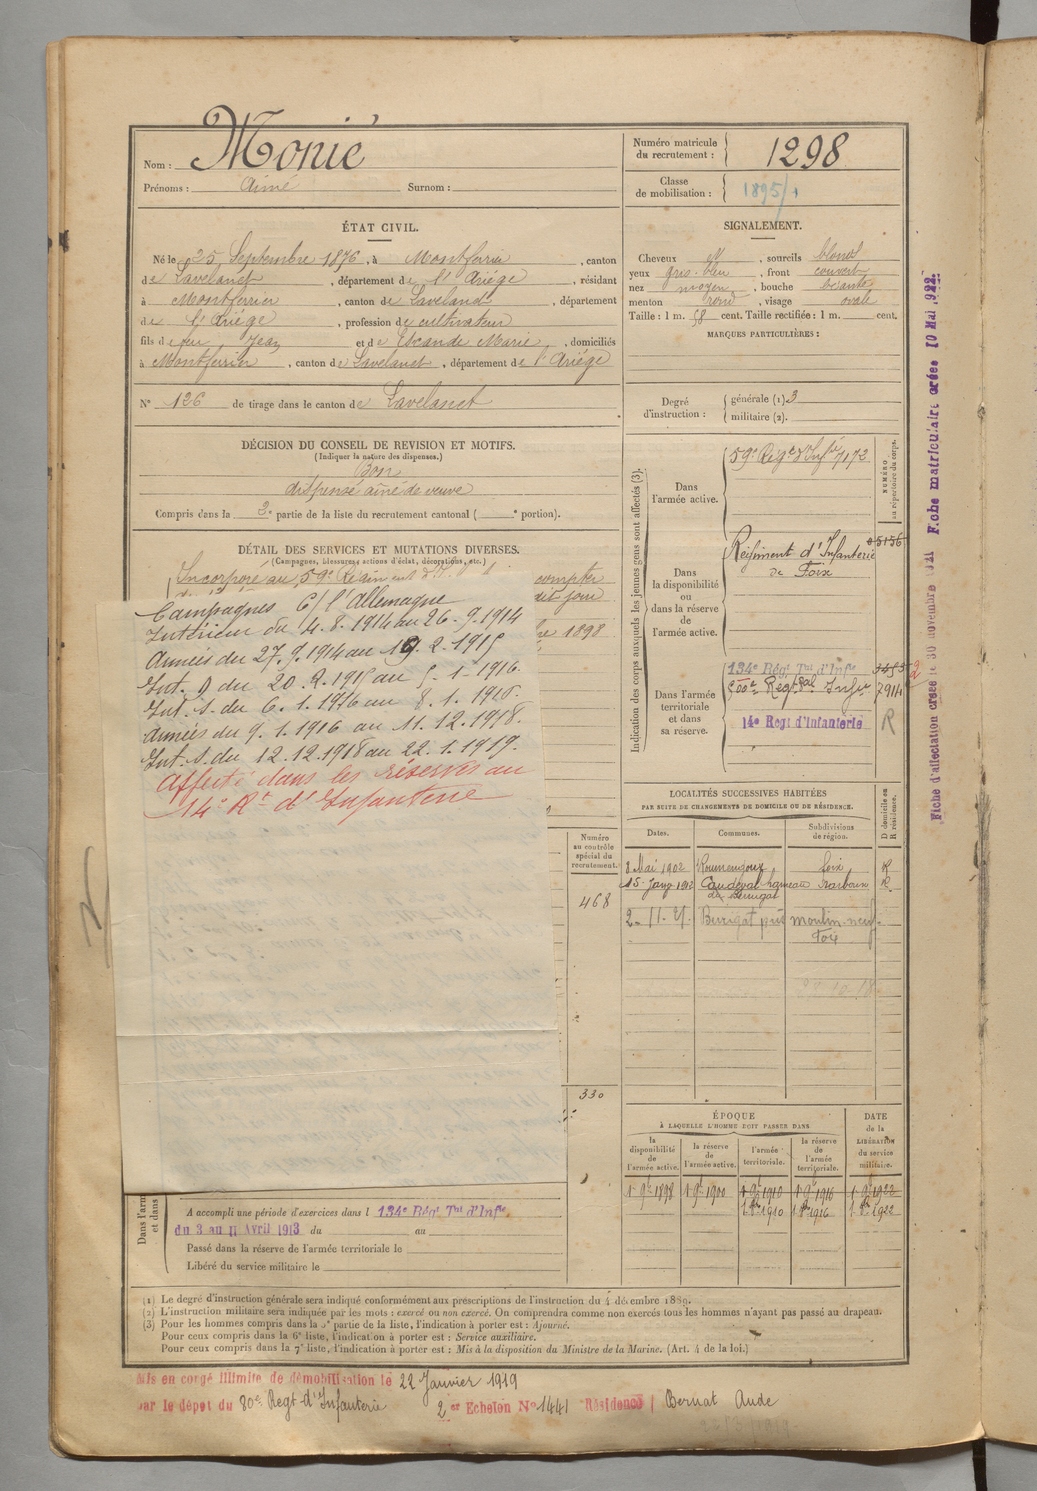 Nom : Monié
Prénoms : Aimé Surnom :
Numéro matricule
du recrutement : 1298
Classe
de mobilisation : 1895/1
ÉTAT CIVIL.
Né le 25 Septembre 1876, à Montferrier, canton
de Lavelanet, département de l'Ariége, résidant
à Montferrier, canton de Lavelanet, département
de l'Ariége, profession de cultivateur
fils de feu Jean et de Escande Marie, domiciliés
à Montferrier, canton de Lavelanet, département de l'Ariége
N° 126 de tirage dans le canton de Lavelanet
SIGNALEMENT.
Cheveux et, sourcils blonds
yeux gris-bleu, front couvert
nez moyen, bouche béante
menton rond, visage ovale
Taille : 1 m. 58 cent. Taille rectifiée : 1 m. cent.
MARQUES PARTICULIÈRES :
Degré
d'instruction :
générale (1). 3
militaire (2).
DÉCISION DU CONSEIL DE REVISION ET MOTIFS.
(Indiquer la nature des dispenses.)
Bon
dispensé aîné de veuve
Compris dans la 2e partie de la liste du recrutement cantonal ( e portion).
DÉTAIL DES SERVICES ET MUTATIONS DIVERSES.
(Campagnes, blessures, actions d'éclat, décorations, etc.)
Incorporé au 59e Régiment compter
dit jour
1898
Campagnes C/ l'Allemagne
Intérieur du 4.8.1914 au 26.9.1914
Armées du 27.9.1914 au 19.2.1915
Int. du 20.2.1915 au 5.1.1916.
Int. S. du 6.1.1916 au 8.1.1916.
Armées du 9.1.1916 au 11.12.1918.
Int. S. du 12.12.1918 au 22.1.1919.
Affecté dans les réserves au
14e Rt d'Infanterie
Indication des corps auxquels les jeunes gens sont affectés (3).
NUMÉRO
au répertoire du corps.
Dans
l'armée active.
59e Régt d'Infie 7172
Dans
la disponibilité
ou
dans la réserve
de
l'armée active.
Régiment d'Infanterie
de Foix
5156
Dans l'armée
territoriale
et dans
sa réserve.
134e Régt Tial d'Infie
500e Régt Tal Infie 7914
14e Régt d'Infanterie R
Fiche d'affectation créée le 30 novembre 1921 Fiche matriculaire créée 10 Mai 1922.
LOCALITÉS SUCCESSIVES HABITÉES
PAR SUITE DE CHANGEMENTS DE DOMICILE OU DE RÉSIDENCE.
Dates. Communes. Subdivisions
de région. D domicile ou
R résidence.
8 Mai 1902 Roumengoux Foix R
15 Janv 1912 Caudeval hameau Narbonne R
2-11-21 moulin-neuf
Foix
Numéro
au contrôle
spécial du
recrutement.
468
330
ÉPOQUE
À LAQUELLE L'HOMME DOIT PASSER DANS
la
disponibilité
de
l'armée active.
la réserve
de
l'armée active.
l'armée
territoriale.
la réserve
de
l'armée
territoriale.
DATE
de la
LIBÉRATION
du service
militaire.
1 9bre 1898 1 9bre 1900 1 9bre 1910 1 9bre 1916 1 9bre 1922
1 8bre 1910 1 8bre 1916 1 8bre 1922
Dans l'arm
et dans
A accompli une période d'exercices dans l 134e Régt Tial d'Infie
du 3 au 11 Avril 1913 du au
Passé dans la réserve de l'armée territoriale le
Libéré du service militaire le
(1) Le degré d'instruction générale sera indiqué conformément aux prescriptions de l'instruction du 4 décembre 1889.
(2) L'instruction militaire sera indiquée par les mots : exercé ou non exercé. On comprendra comme non exercés tous les hommes n'ayant pas passé au drapeau.
(3) Pour les hommes compris dans la 5e partie de la liste, l'indication à porter est : Ajourné.
Pour ceux compris dans la 6e liste, l'indication à porter est : Service auxiliaire.
Pour ceux compris dans la 7e liste, l'indication à porter est : Mis à la disposition du Ministre de la Marine. (Art. 4 de la loi.)
Mis en congé illimité de démobilisation le 22 Janvier 1919
par le dépôt du 80e Régt d'Infanterie 2e Echelon N° 1441 Résidence Bernat Aude